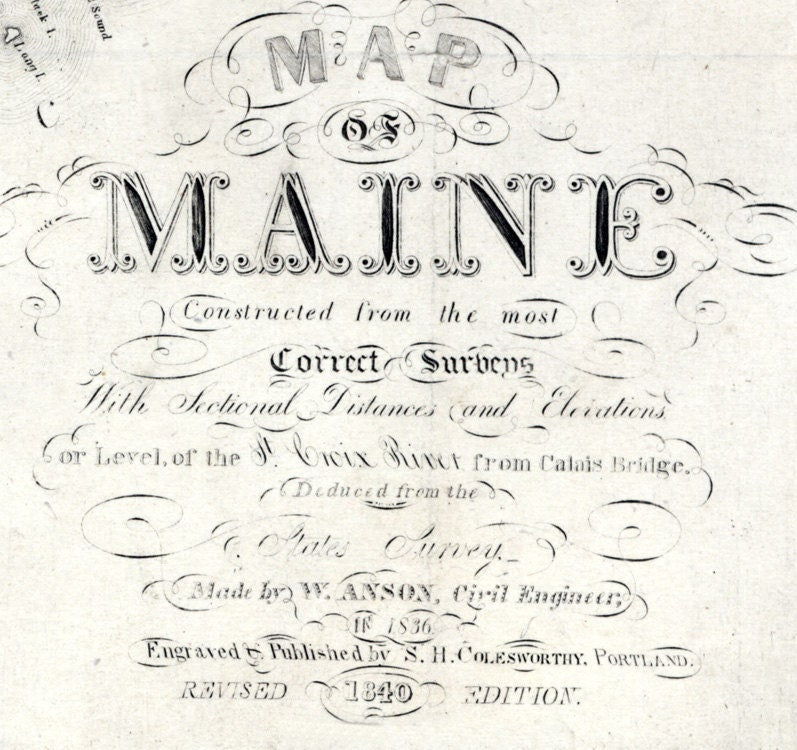 Sound
Long I.
MAP
OF
MAINE
Constructed from the most
Correct Surveys
With Sectional Distances and Elevations
or Level, of the St. Croix River from Calais Bridge.
Deduced from the
States Survey.
Made by W. ANSON, Civil Engineer,
IN 1836
Engraved & Published by S. H. COLESWORTHY, PORTLAND.
REVISED 1840 EDITION.